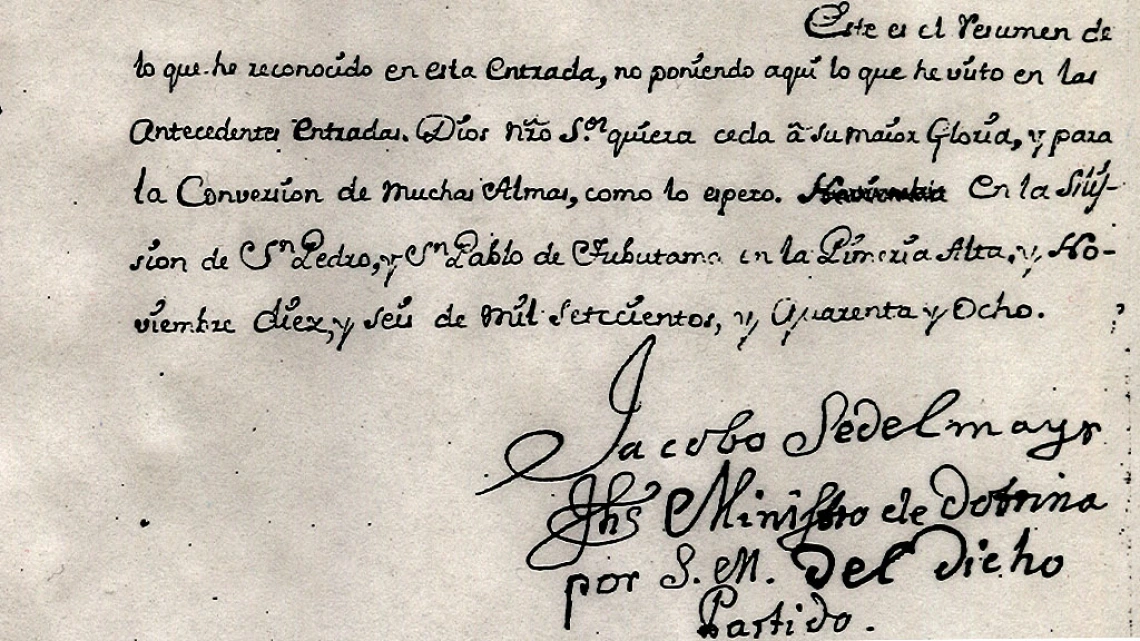 Este es el Resumen de
lo que he reconocido en esta Entrada, no poniendo aqui lo que he visto en las
Antecedentes Entradas. Dios nrõ S.or quiera ceda â su maior Gloria, y para
la Conversion de Muchas Almas, como lo espero. En la Miss-
sion de Sn Pedro, y Sn Pablo de Tubutama en la Pimeria Alta, y No-
viembre diez, y seis de Mil Setecientos, y Quarenta y Ocho.
Jacobo Sedelmayr
Jhs Ministro de Dotrina
por S. M. Del Dicho
Partido.